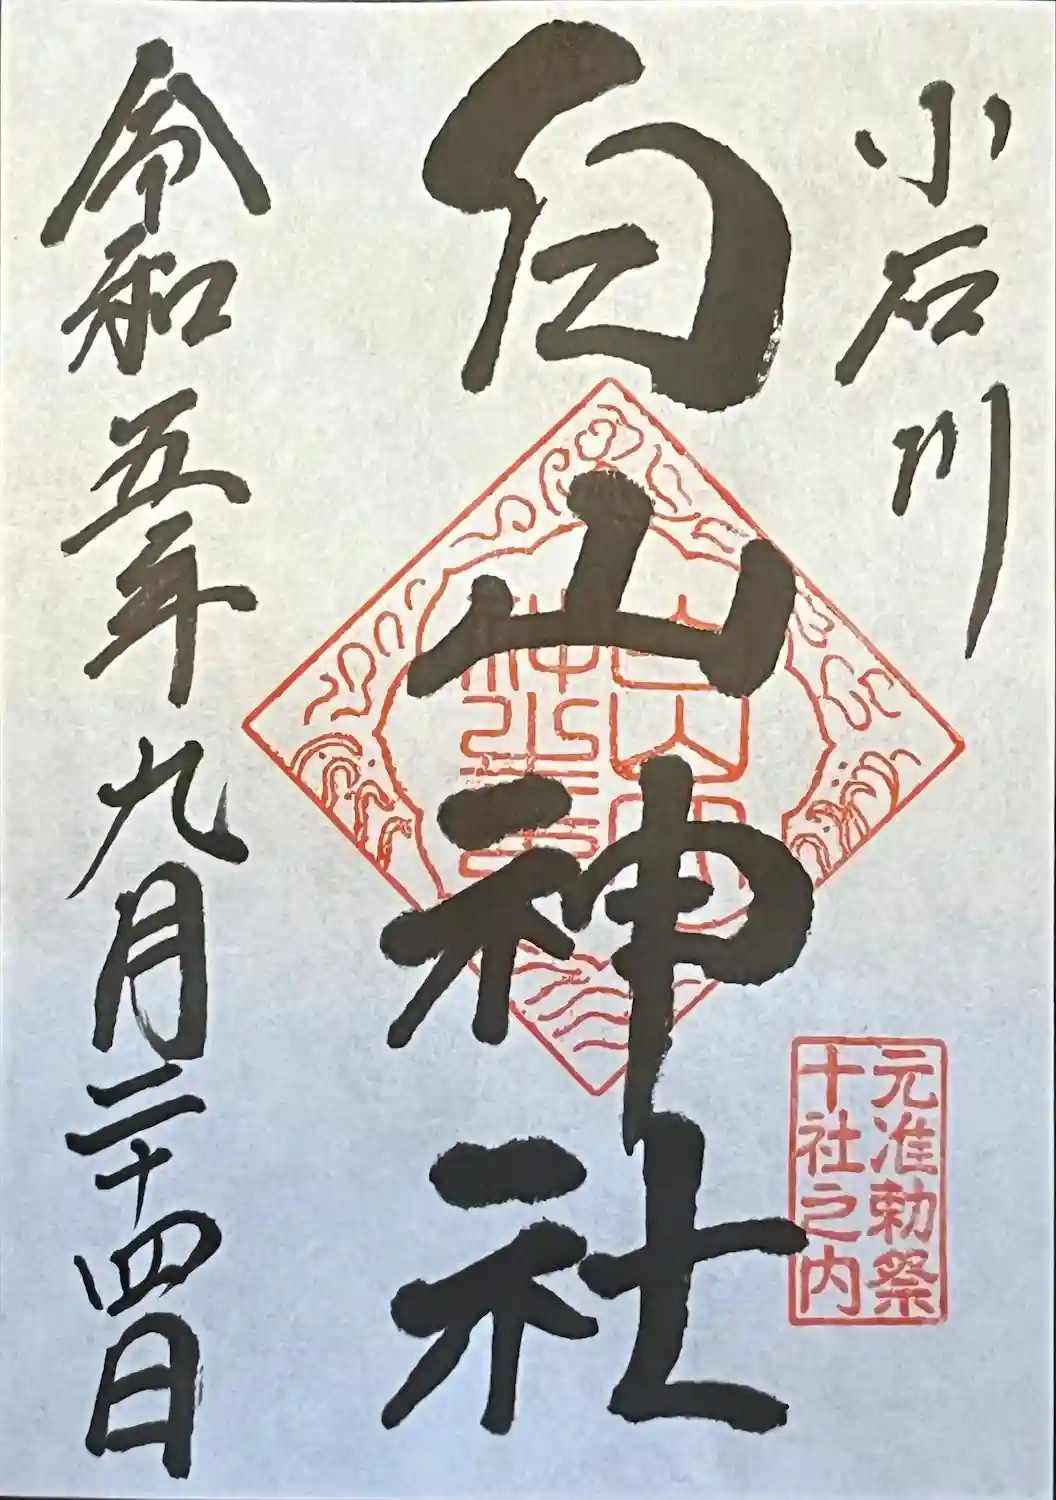 小石川
白山神社
元准勅祭
十社之内
令和五年九月二十四日